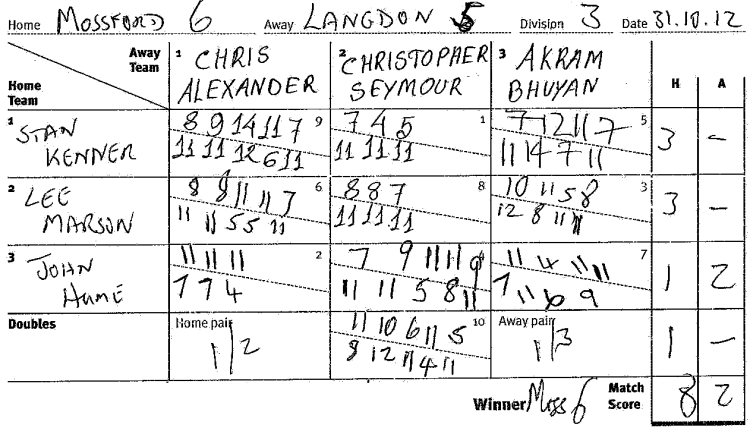 Home MOSSFORD 6 Away LANGDON 5 Division 3 Date 31.10.12
Away Team
Home Team
1 CHRIS ALEXANDER
2 CHRISTOPHER SEYMOUR
3 AKRAM BHUYAN
H A
1 STAN KENNER
8 9 14 11 7 9
11 11 12 6 11
7 4 5 1
11 11 11
7 12 11 7 5
11 14 7 11
3 –
2 LEE MARSON
8 8 11 11 3 6
11 11 5 5 11
8 8 7 8
11 11 11
10 11 5 8 3
12 8 11 11
3 –
3 JOHN HUME
11 11 11 2
7 7 4
7 9 11 11 9
11 11 5 8 11
11 4 11 11 7
7 11 6 9
1 2
Doubles
Home pair
1/2
11 10 6 11 5 10
8 12 11 4 11
Away pair
1/3
1 –
Winner Moss 6 Match Score 8 2